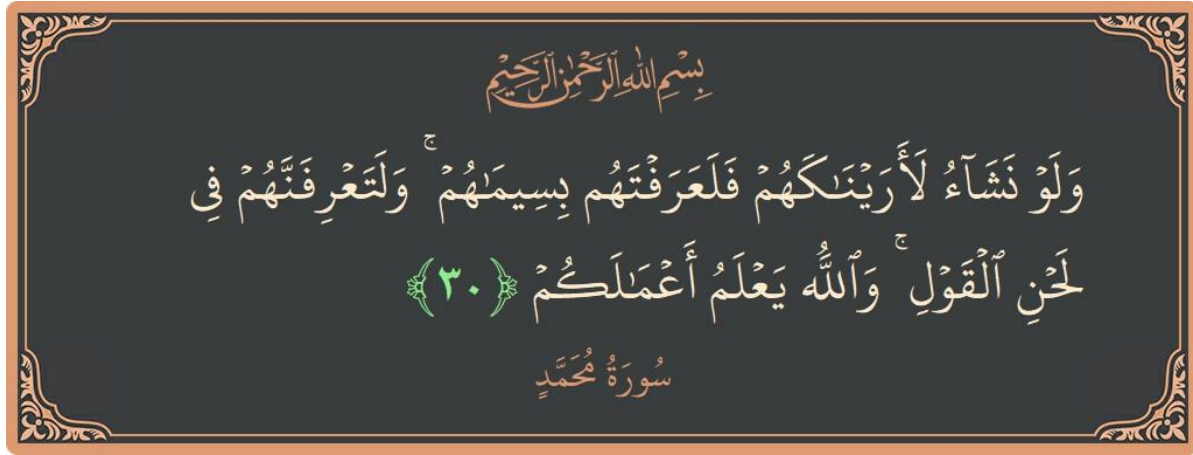 بِسْمِ اللهِ الرَّحْمٰنِ الرَّحِيْمِ
وَلَوْ نَشَآءُ لَأَرَيْنَـٰكَهُمْ فَلَعَرَفْتَهُم بِسِيمَـٰهُمْ ۚ وَلَتَعْرِفَنَّهُمْ فِى
لَحْنِ ٱلْقَوْلِ ۚ وَٱللَّهُ يَعْلَمُ أَعْمَـٰلَكُمْ ﴿٣٠﴾
سُورَةُ مُحَمَّدٍ